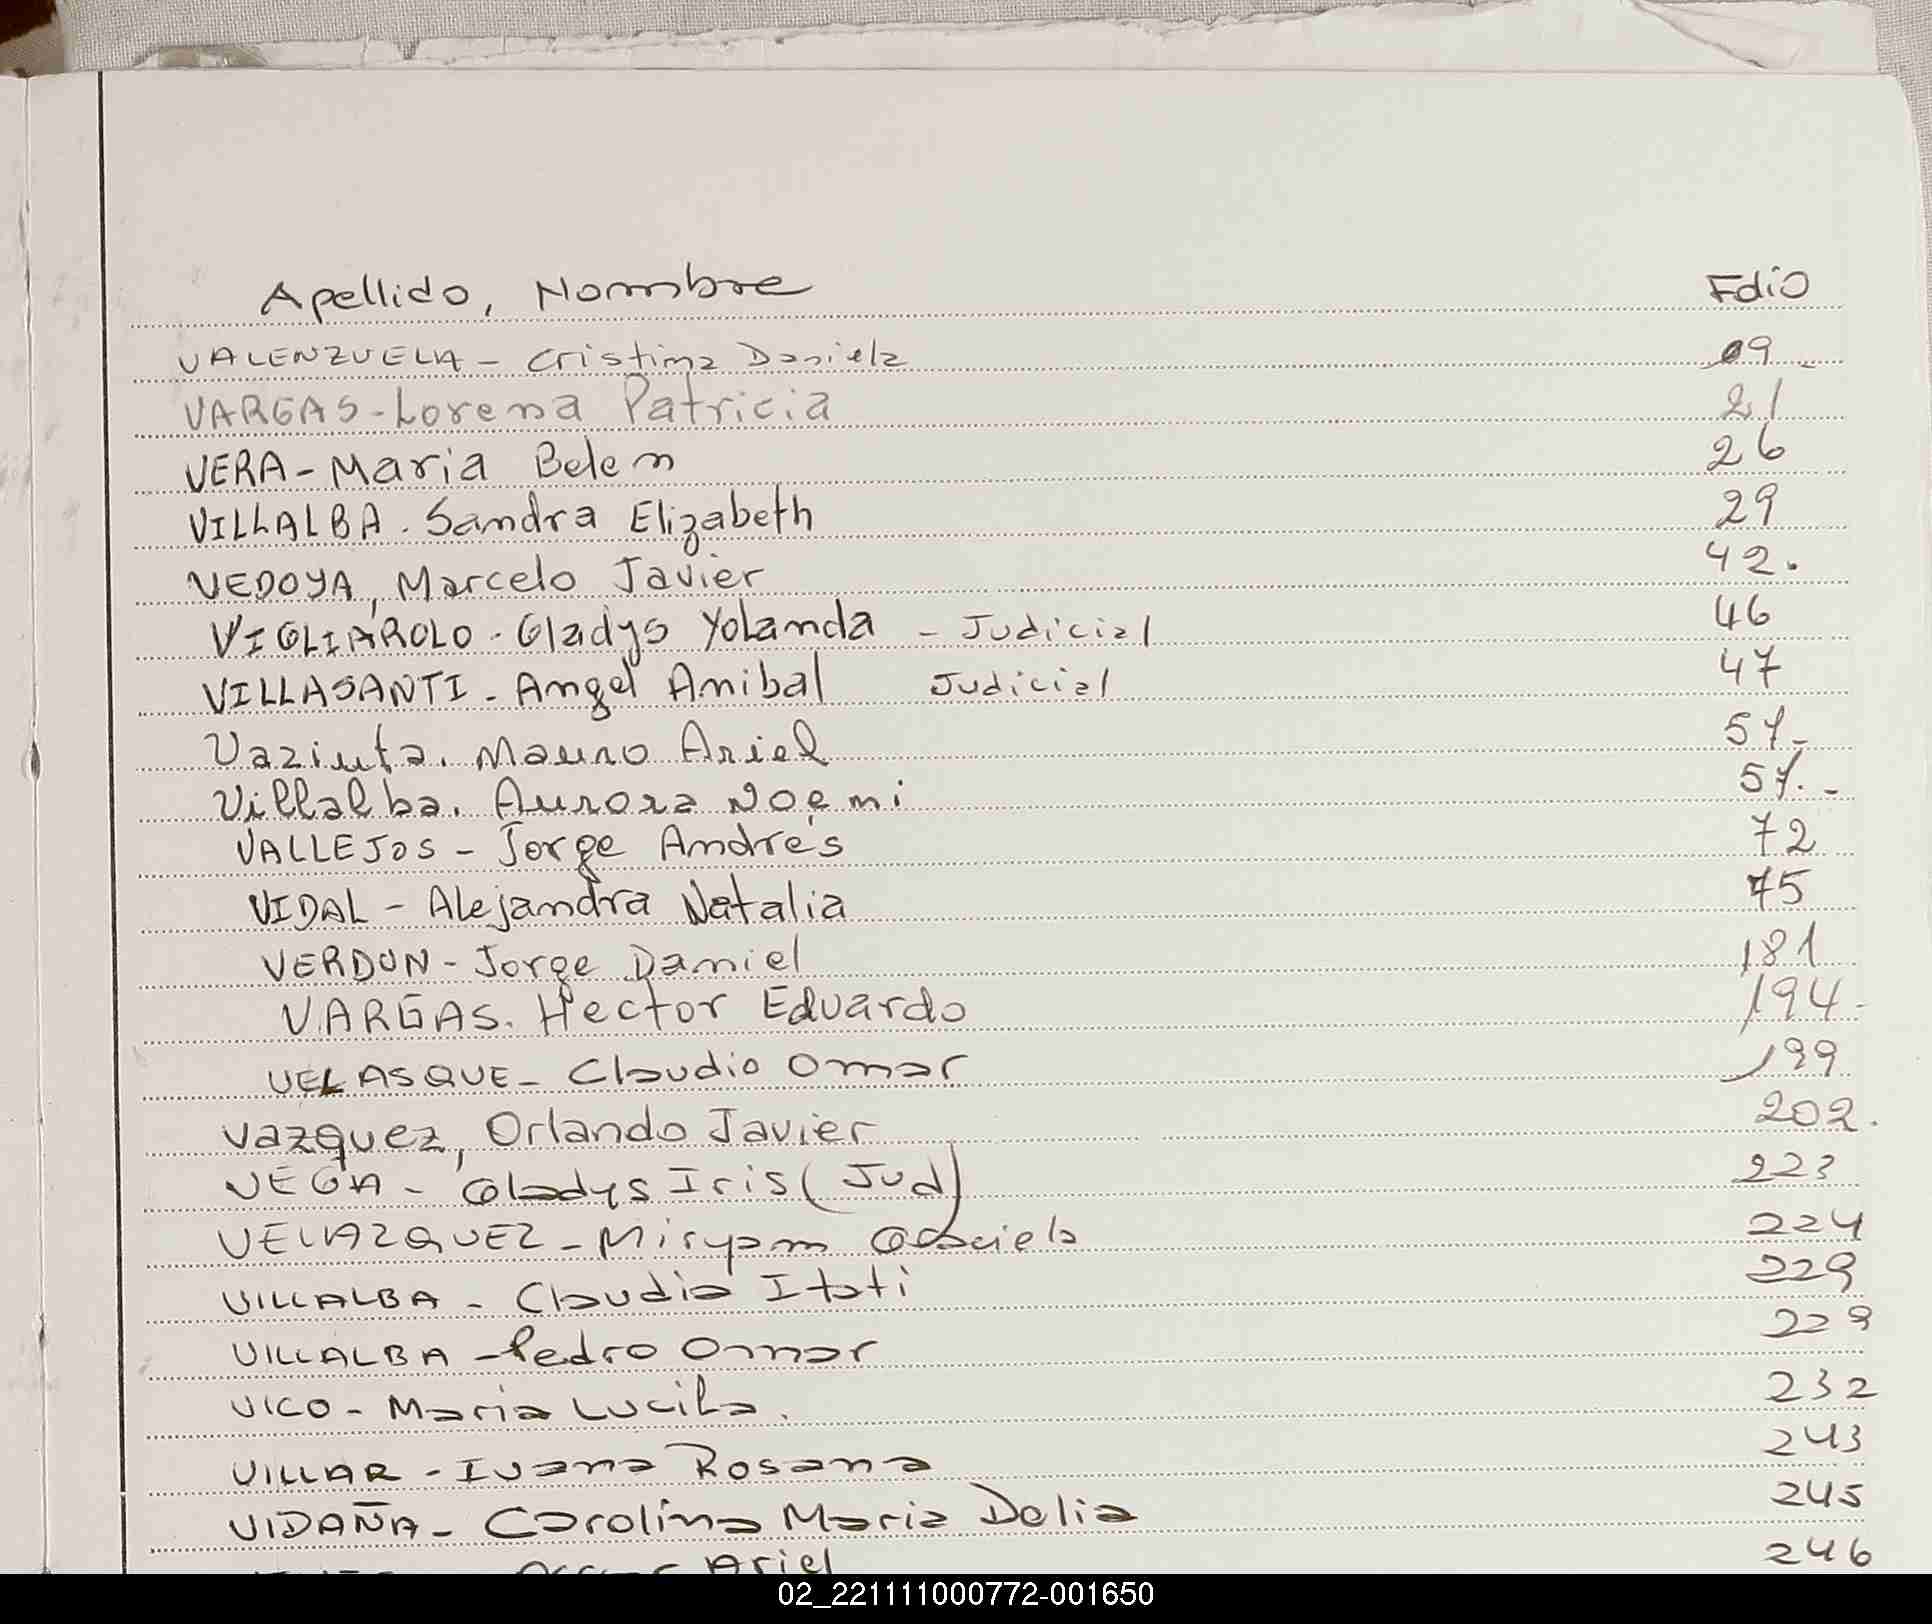 Apellido, Nombre Folio
VALENZUELA - Cristina Daniela 09.-
VARGAS - Lorena Patricia 21
VERA - Maria Belen 26
VILLALBA. Sandra Elizabeth 29
VEDOYA, Marcelo Javier 42.
VIGLIAROLO - Gladys Yolanda - Judicial 46
VILLASANTI - Angel Anibal Judicial 47
Mauro Ariel
Villalba. Aurora Noemi
VALLEJOS - Jorge Andrés 72
VIDAL - Alejandra Natalia 75
VERDUN - Jorge Daniel 181
VARGAS. Hector Eduardo 194-
VELASQUE - Claudio Omar 199
Vazquez, Orlando Javier 202.
VEGA - Gladys Iris (Jud) 223
VELAZQUEZ - Miryam Graciela 224
VILLALBA - Claudia Itati 229
VILLALBA - Pedro Omar 229
VICO - Maria Lucila. 232
VILLAR - Ivana Rosana 243
VIDAÑA - Carolina Maria Delia 245
Ariel 246
02_221111000772-001650